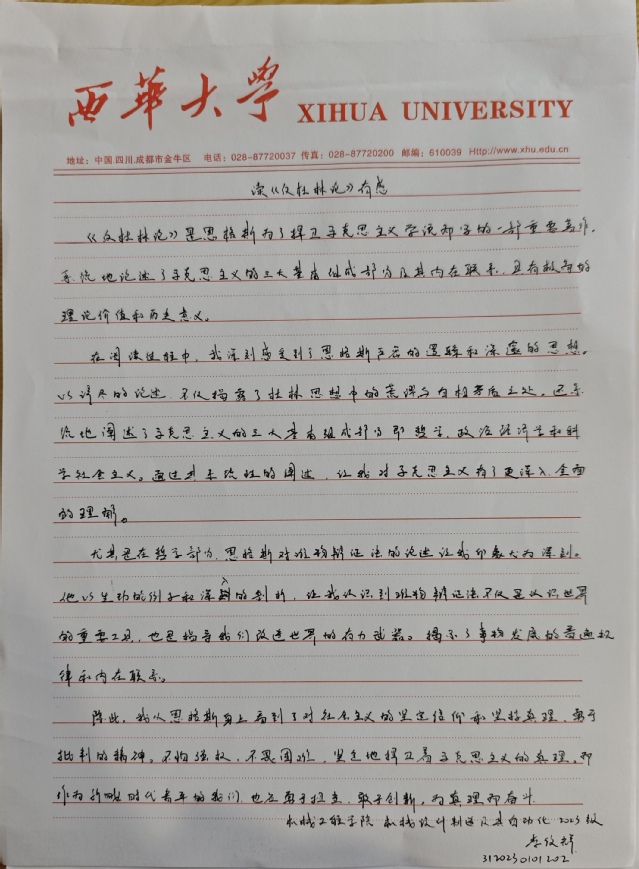 西華大學 XIHUA UNIVERSITY
地址：中国.四川.成都市金牛区 电话：028-87720037 传真：028-87720200 邮编：610039 Http://www.xhu.edu.cn
读《反杜林论》有感
《反杜林论》是恩格斯为了捍卫马克思主义学说而写的一部重要著作，
系统地论述了马克思主义的三大基本组成部分及其内在联系，具有极高的
理论价值和历史意义。
在阅读过程中，我深刻感受到了恩格斯严密的逻辑和深邃的思想。
以详尽的论述，不仅揭露了杜林思想中的荒谬与自相矛盾之处，还系
统地阐述了马克思主义的三大基本组成部分即哲学，政治经济学和科
学社会主义。通过其系统性的阐述，让我对马克思主义有了更深入，全面
的理解。
尤其是在哲学部分，恩格斯对唯物辩证法的论述让我印象尤为深刻。
他以生动的例子和深入的剖析，让我认识到唯物辩证法不仅是认识世界
的重要工具，也是指导我们改造世界的有力武器。揭示了事物发展的普遍规
律和内在联系。
除此，我从恩格斯身上看到了对社会主义的坚定信仰和坚持真理，勇于
批判的精神。不怕强权，不畏困难，坚定地捍卫着马克思主义的真理。而
作为新时代青年的我们，也应勇于担当，敢于创新，为真理而奋斗
机械工程学院 机械设计制造及其自动化 2023级
312023010120 2